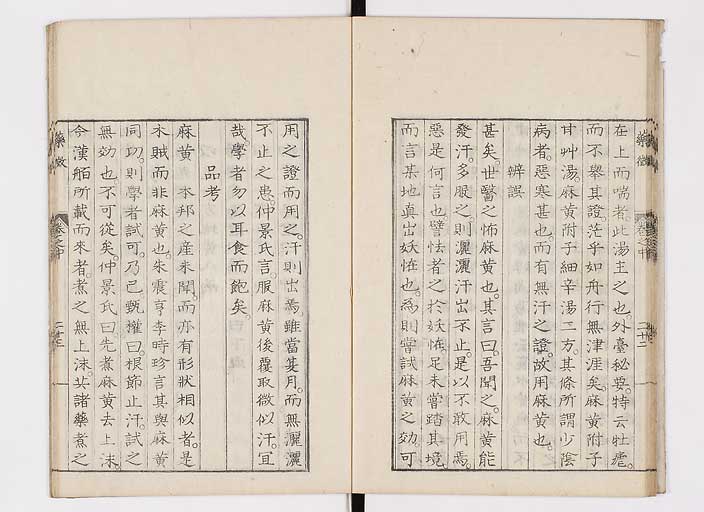 在上而喘者此湯主之也。外臺秘要。特云牡瘧。
而不舉其證。茫乎如舟行無津涯矣。麻黃附子
甘艸湯。麻黃附子細辛湯二方。其條所謂少陰
病者。惡寒甚也。而有無汗之證。故用麻黃也。
辨誤
甚矣。世醫之怖麻黃也。其言曰。吾聞之。麻黃能
發汗。多服之。則灑灑汗出不止。是以不敢用焉。
惡是何言也。譬怯者之於妖怪。足未嘗踏其境。
而言某地眞出妖怪也。爲則嘗試麻黃之効。可
用之證而用之。汗則出焉。雖當夏月。而無灑灑
不止之患。仲景氏言。服麻黃後。覆取微似汗。宜
哉。學者勿以耳食而飽矣。
品考
麻黃 本邦之産未聞。而亦有形狀相似者。是
木賊而非麻黃也。朱震亨李時珍言其與麻黃
同功。則學者試可。乃已。甄權曰。根節止汗。試之
無効也。不可從矣。仲景氏曰。先煮麻黃去上沫。
今漢舶所載而來者。煮之無上沫。共諸藥煮之
藥徵
卷之中
二十二
藥徵
卷之中